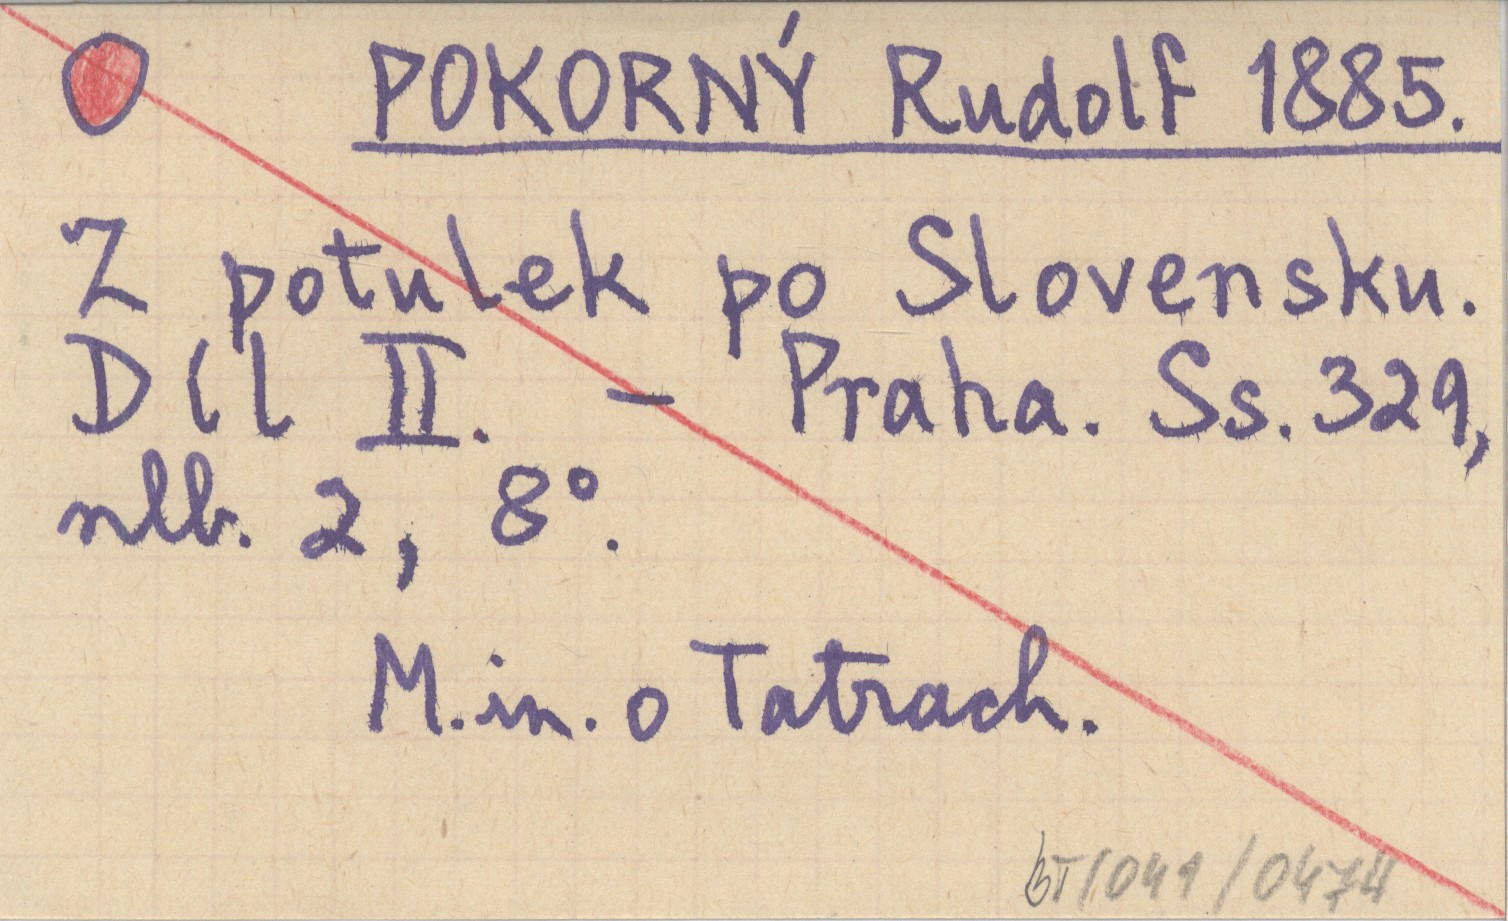 POKORNÝ Rudolf 1885.
Z potulek po Slovensku.
Díl II. – Praha. Ss. 329,
nlb. 2, 8°.
M. in. o Tatrach.
BT/041/0474